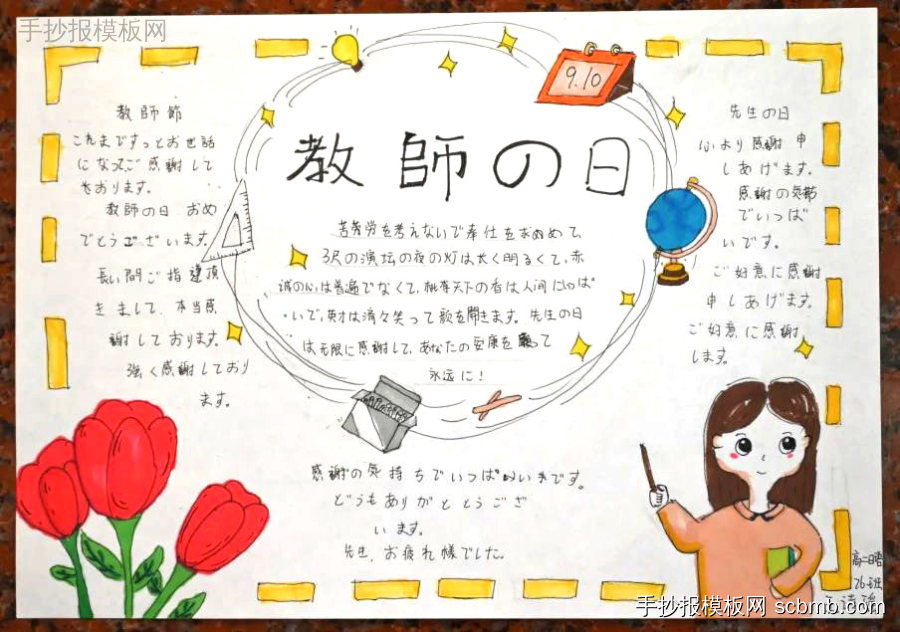 手抄报模板网
9.10
教師の日
教師節
これまでずっとお世話
になってご感謝して
をおります。
教師の日 おめ
でとうございます。
長い間ご指導頂
きまして、本当感
謝しております。
強く感謝しており
ます。
苦労を考えないで奉仕を求めて、
3尺の演坛の夜の灯は太く明るくて、赤
誠の心は普通でなくて、桃李天下の香は人间にいっぱ
いで、英才は済々笑って歌を聞きます。先生の日
は无限に感謝して、あなたの安康を願って
永远に！
先生の日
心より感謝申
しあげます。
感謝の気
でいっぱ
いです。
ご好意に感謝
申しあげます。
ご好意に感謝
します。
感謝の気持ちでいっぱいです。
どうもありがととうござ
います。
先生、お疲れ様でした。
高二日语
26班
手抄报模板网 scbmb.com